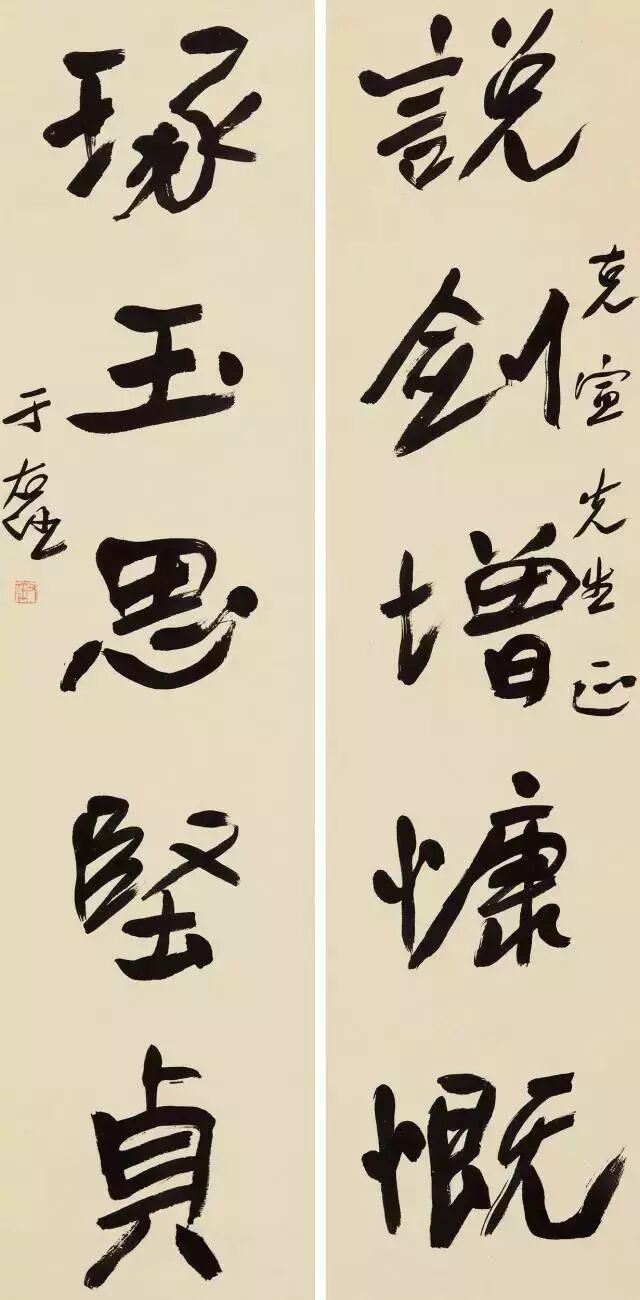 克宣先生正
說劍增慷慨
琢玉思堅貞
于右任